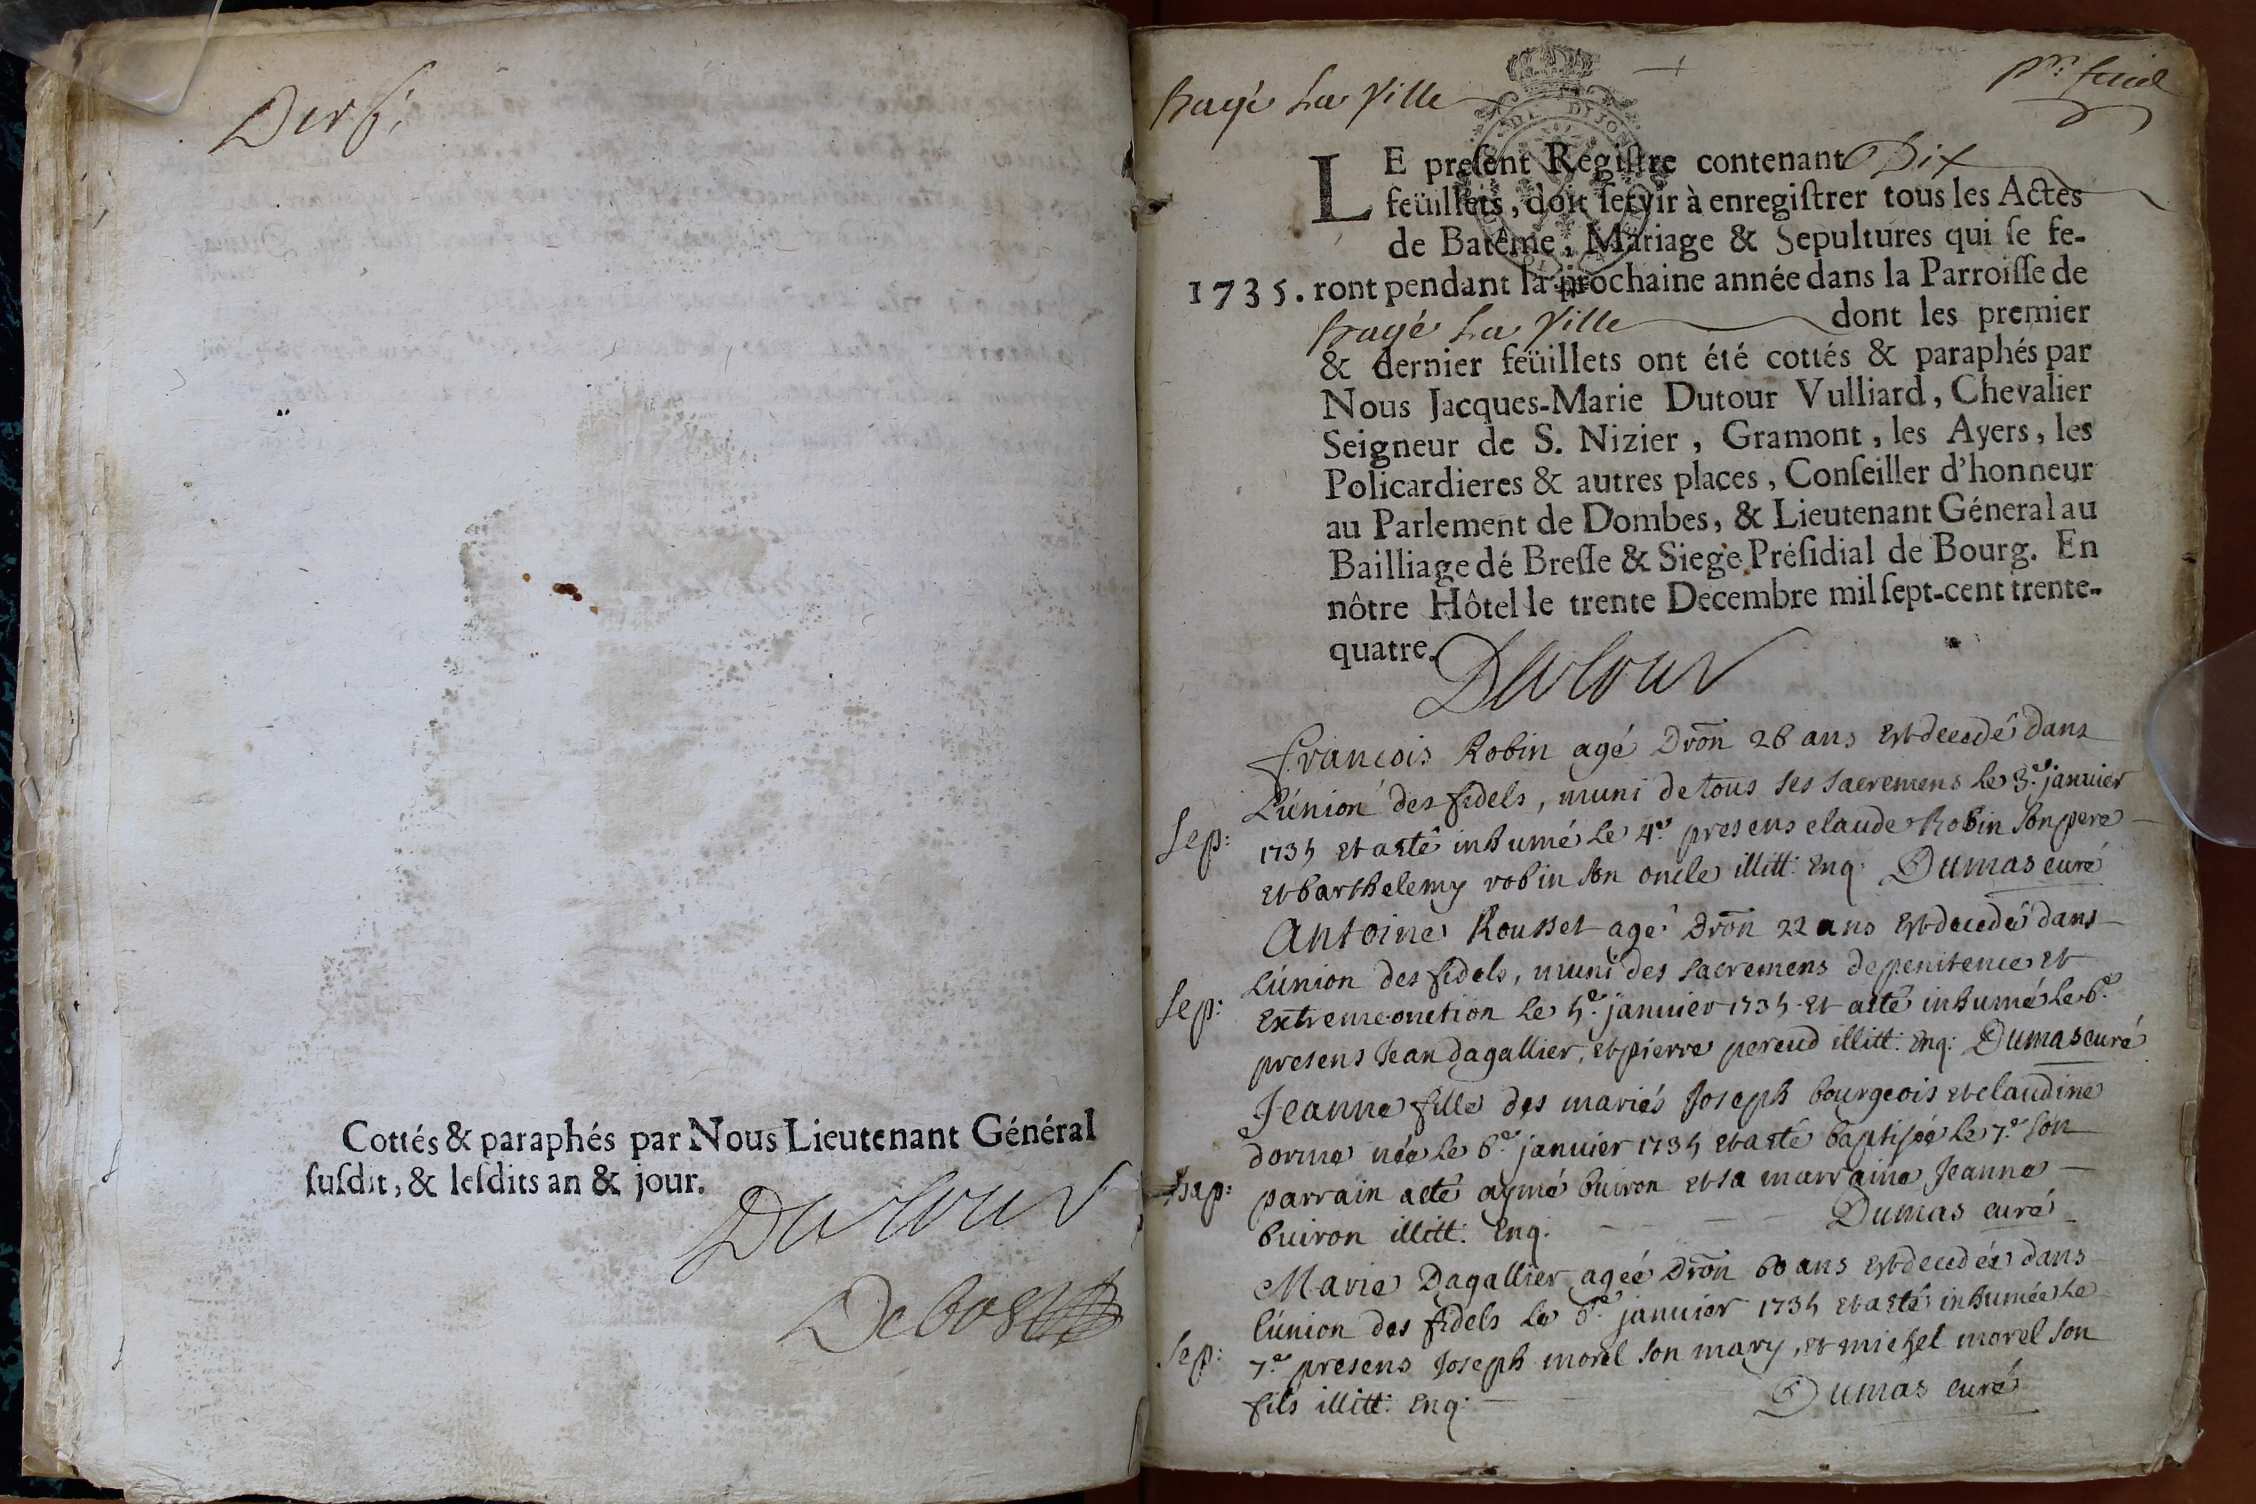 Der f:
Cottés & paraphés par Nous Lieutenant Général
ſuſdit, & leſdits an & jour.
Dutour
Debost
Bagé La Ville
pr. feuil
LE preſent Regiſtre contenant Dix
feüillets, doit ſervir à enregiſtrer tous les Actes
de Batême, Mariage & Sepultures qui ſe fe-
1735. ront pendant la prochaine année dans la Parroiſſe de
Bagé La Ville dont les premier
& dernier feüillets ont été cottés & paraphés par
Nous Jacques-Marie Dutour Vulliard, Chevalier
Seigneur de S. Nizier, Gramont, les Ayers, les
Policardieres & autres places, Conſeiller d'honneur
au Parlement de Dombes, & Lieutenant Géneral au
Bailliage dé Breſſe & Siege Préſidial de Bourg. En
nôtre Hôtel le trente Decembre mil ſept-cent trente-
quatre.
Dutour
François Robin agé Dron 28 ans Est decedé dans
L'union des fidels, muni de tous ses sacremens le 3e. janvier
Sep: 1735 et a esté inhumé le 4e. presens claude Robin son pere
et barthelemy robin son oncle illitt: Enq: Dumas curé
Antoine Rousset agé Dron 22 ans Est decedé dans
L'union des fidels, muni des sacremens de penitence et
Sep: Extreme onction le 5e. janvier 1735 et a esté inhumé le 6e.
presens Jean Dagallier, et pierre perend illitt: Enq: Dumas curé
Jeanne fille des mariés Joseph bourgeois et claudine
dorme née le 6e. janvier 1735 et a esté baptisée le 7e. son
Bap: parrain a esté aymé buiron et sa marraine Jeanne
buiron illitt: Enq. Dumas curé
Marie Dagallier ageé Dron 60 ans Est decedée dans
l'union des fidels le 6e. janvier 1735 et a esté inhumée le
Sep: 7e. presens Joseph morel son mary, et michel morel son
fils illitt: Enq: Dumas curé